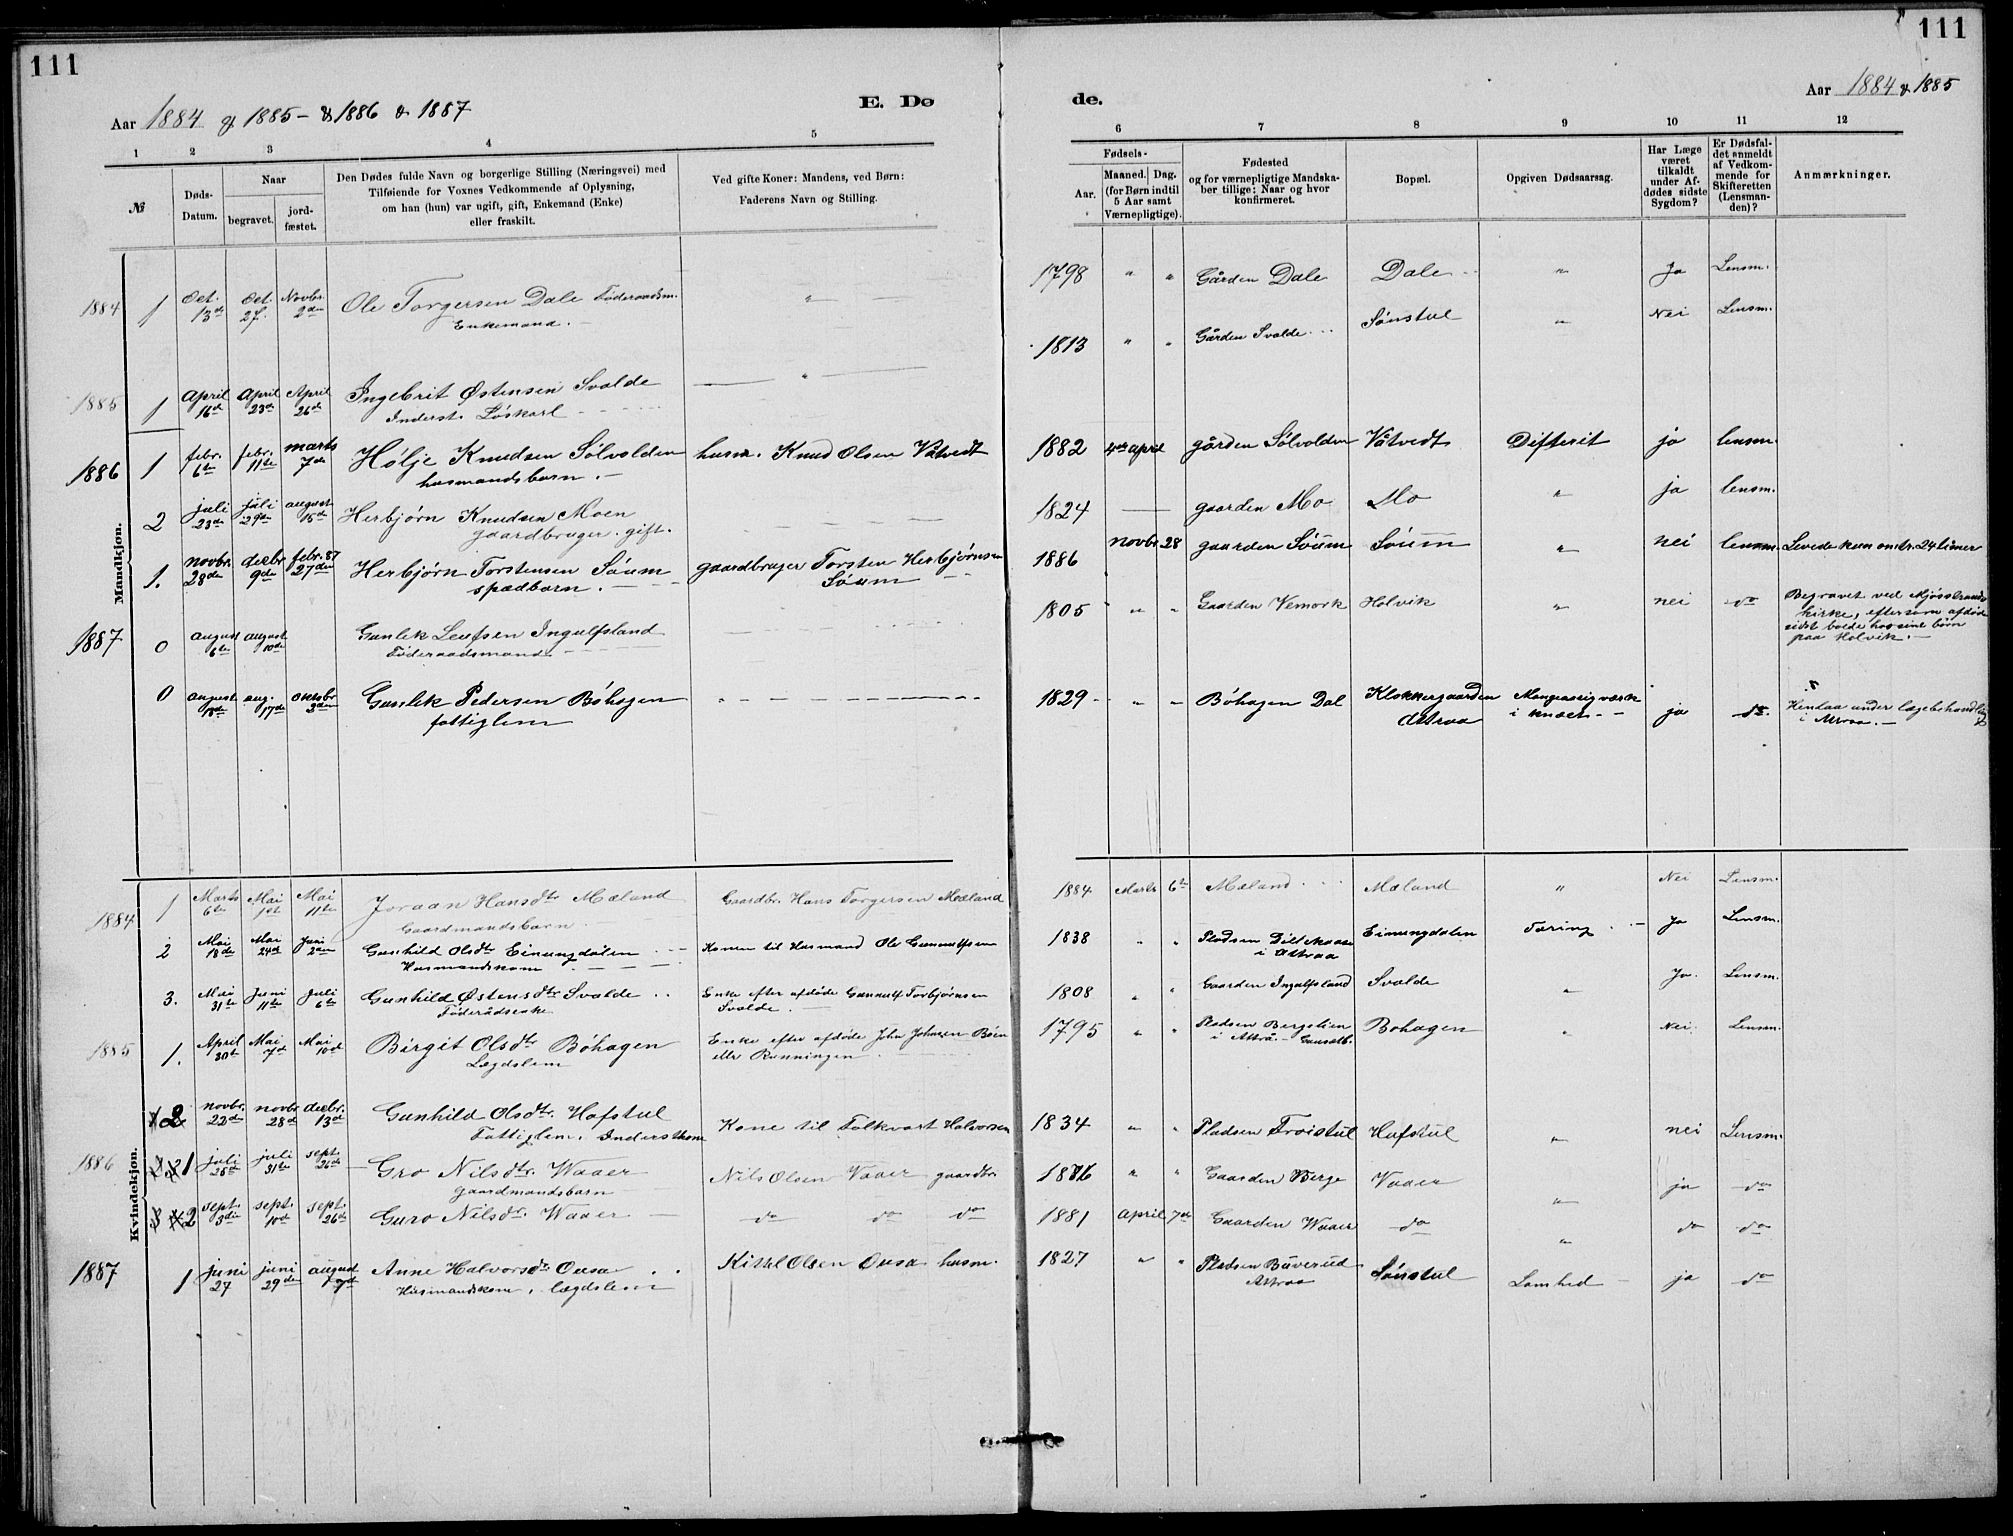 111
111
Aar 1884 & 1885 - & 1886 & 1887
E. Dø
de.
Aar 1884 & 1885
1 2 3 4 5
6 7 8 9 10 11 12
№
Døds-
Datum.
Naar
begravet.
jord-
fæstet.
Den Dødes fulde Navn og borgerlige Stilling (Næringsvei) med
Tilføiende for Voxnes Vedkommende af Oplysning,
om han (hun) var ugift, gift, Enkemand (Enke)
eller fraskilt.
Ved gifte Koner: Mandens, ved Børn:
Faderens Navn og Stilling.
Fødsels-
Aar.
Maaned. Dag.
(for Børn indtil
5 Aar samt
Værnepligtige).
Fødested
og for værnepligtige Mandska-
ber tillige: Naar og hvor
konfirmeret.
Bopæl.
Opgiven Dødsaarsag.
Har Læge
været
tilkaldt
under Af-
dødes sidste
Sygdom?
Er Dødsfal-
det anmeldt
af Vedkom-
mende for
Skifteretten
(Lensman-
den)?
Anmærkninger.
Mandkjøn.
1884 1 Oct. 13de Oct. 27. Novbr. 2den Ole Torgersen Dale Føderaadsm. " 1798 " " Gården Dale Dale " Ja Lensm.
Enkemand.
1885 1 April 16de April 23de April 26de Ingebrit Østensen Svalde " 1813 " " Gården Svalde Sønstul " Nei Lensm.
Inderst. Løskarl
1886 1 febr. 6te febr. 11te marts 7de Hølje Knudsen Sølvolden husm. Knud Olsen Våtvedt 1882 4de april gården Sølvolden Våtvedt Difterit ja lensm.
husmandsbarn.
2 juli 23de juli 29de august 15de Herbjørn Knudsen Moen 1824 gaarden Mo Mo " ja lensm.
gaardbruger. gift.
1. novbr. 28de decbr 9de febr. 87 27den Herbjørn Torstensen Sóum gaardbruger Torsten Herbjørnsen 1886 novbr 28 gaarden Sóum Sóum " nei lensm. Levede kun omtr. 24 timer
spædbarn. Sóum
1887 0 august 6te august 10de Gunlek Leufsen Ingulfsland 1805 " " Gaarden Vemork Holvik " nei do Begravet ved Mjøsstrands
Føderaadsmand kirke, eftersom afdøde
sidst boede hos sine børn
paa Holvik.
0 august aug. 17de oktobr 2den Gunlek Pedersen Bøhagen 1829 " " Bøhagen Dal Klokkergaarden i knæet ja do. Hendaa under lægebehandling
fattiglem Attraa i Attraa.
Kvindekjøn.
1884 1 Marts 6te Mai 1st Mai 11te Joraan Hansdtr Mæland Gaardbr. Hans Torgersen Mæland 1884 Marts 6te Mæland Mæland " Nei Lensm.
Gaardmandsbarn
2 Mai 18de Mai 24de Juni 2den Gunhild Olsdtr Einungdalen Konen til Husmand Ole Gunnulfsen 1838 " " Pladsen Einungdalen Tæring Ja Lensm.
Husmandskone i Attraa
3. Mai 31te Juni 11te Juli 6te Gunhild Østensdtr Svalde Enke efter afdøde Gunnulf Torbjørnsen 1808 " " Gaarden Ingulfsland Svalde " Ja. Lensm.
Føderådsenke Svalde.
1885 1. April 30te Mai 7de Mai 10de Birgit Olsdtr Bøhagen Enke efter afdøde John Johnsen Bøen 1795 " " Pladsen Bergelien Bøhagen " Nei Lensm.
Lægdslem eller Rønningen i Attrå.
2 novbr. 22de novbr 28de decbr. 13de Gunhild Olsdtr. Hofstul Kone til Folkvart Halvorsen 1834 " " Pladsen Froistul Hofstul " nei Lensm.
Fattiglem. Inderstkone
1886 1 juli 25de juli 31te sept. 26de Gro Nilsdtr. Waaer Nils Olsen Vaaer gaardbr. 1876 " " Gaarden Berge Vaaer " ja do
gaardmandsbarn
2 sept. 3die sept. 10de sept. 26de Guro Nilsdtr. Waaer do do do 1881 April 7de Gaarden Waaer do " do do
1887 1 juni 27 juni 29de august 7de Anne Halvorsdtr Ousa Kittel Olsen Ousa husm. 1827 " " Pladsen Buverud Sønstul Lamhed ja do
Husmandskone, lægdslem Attraa